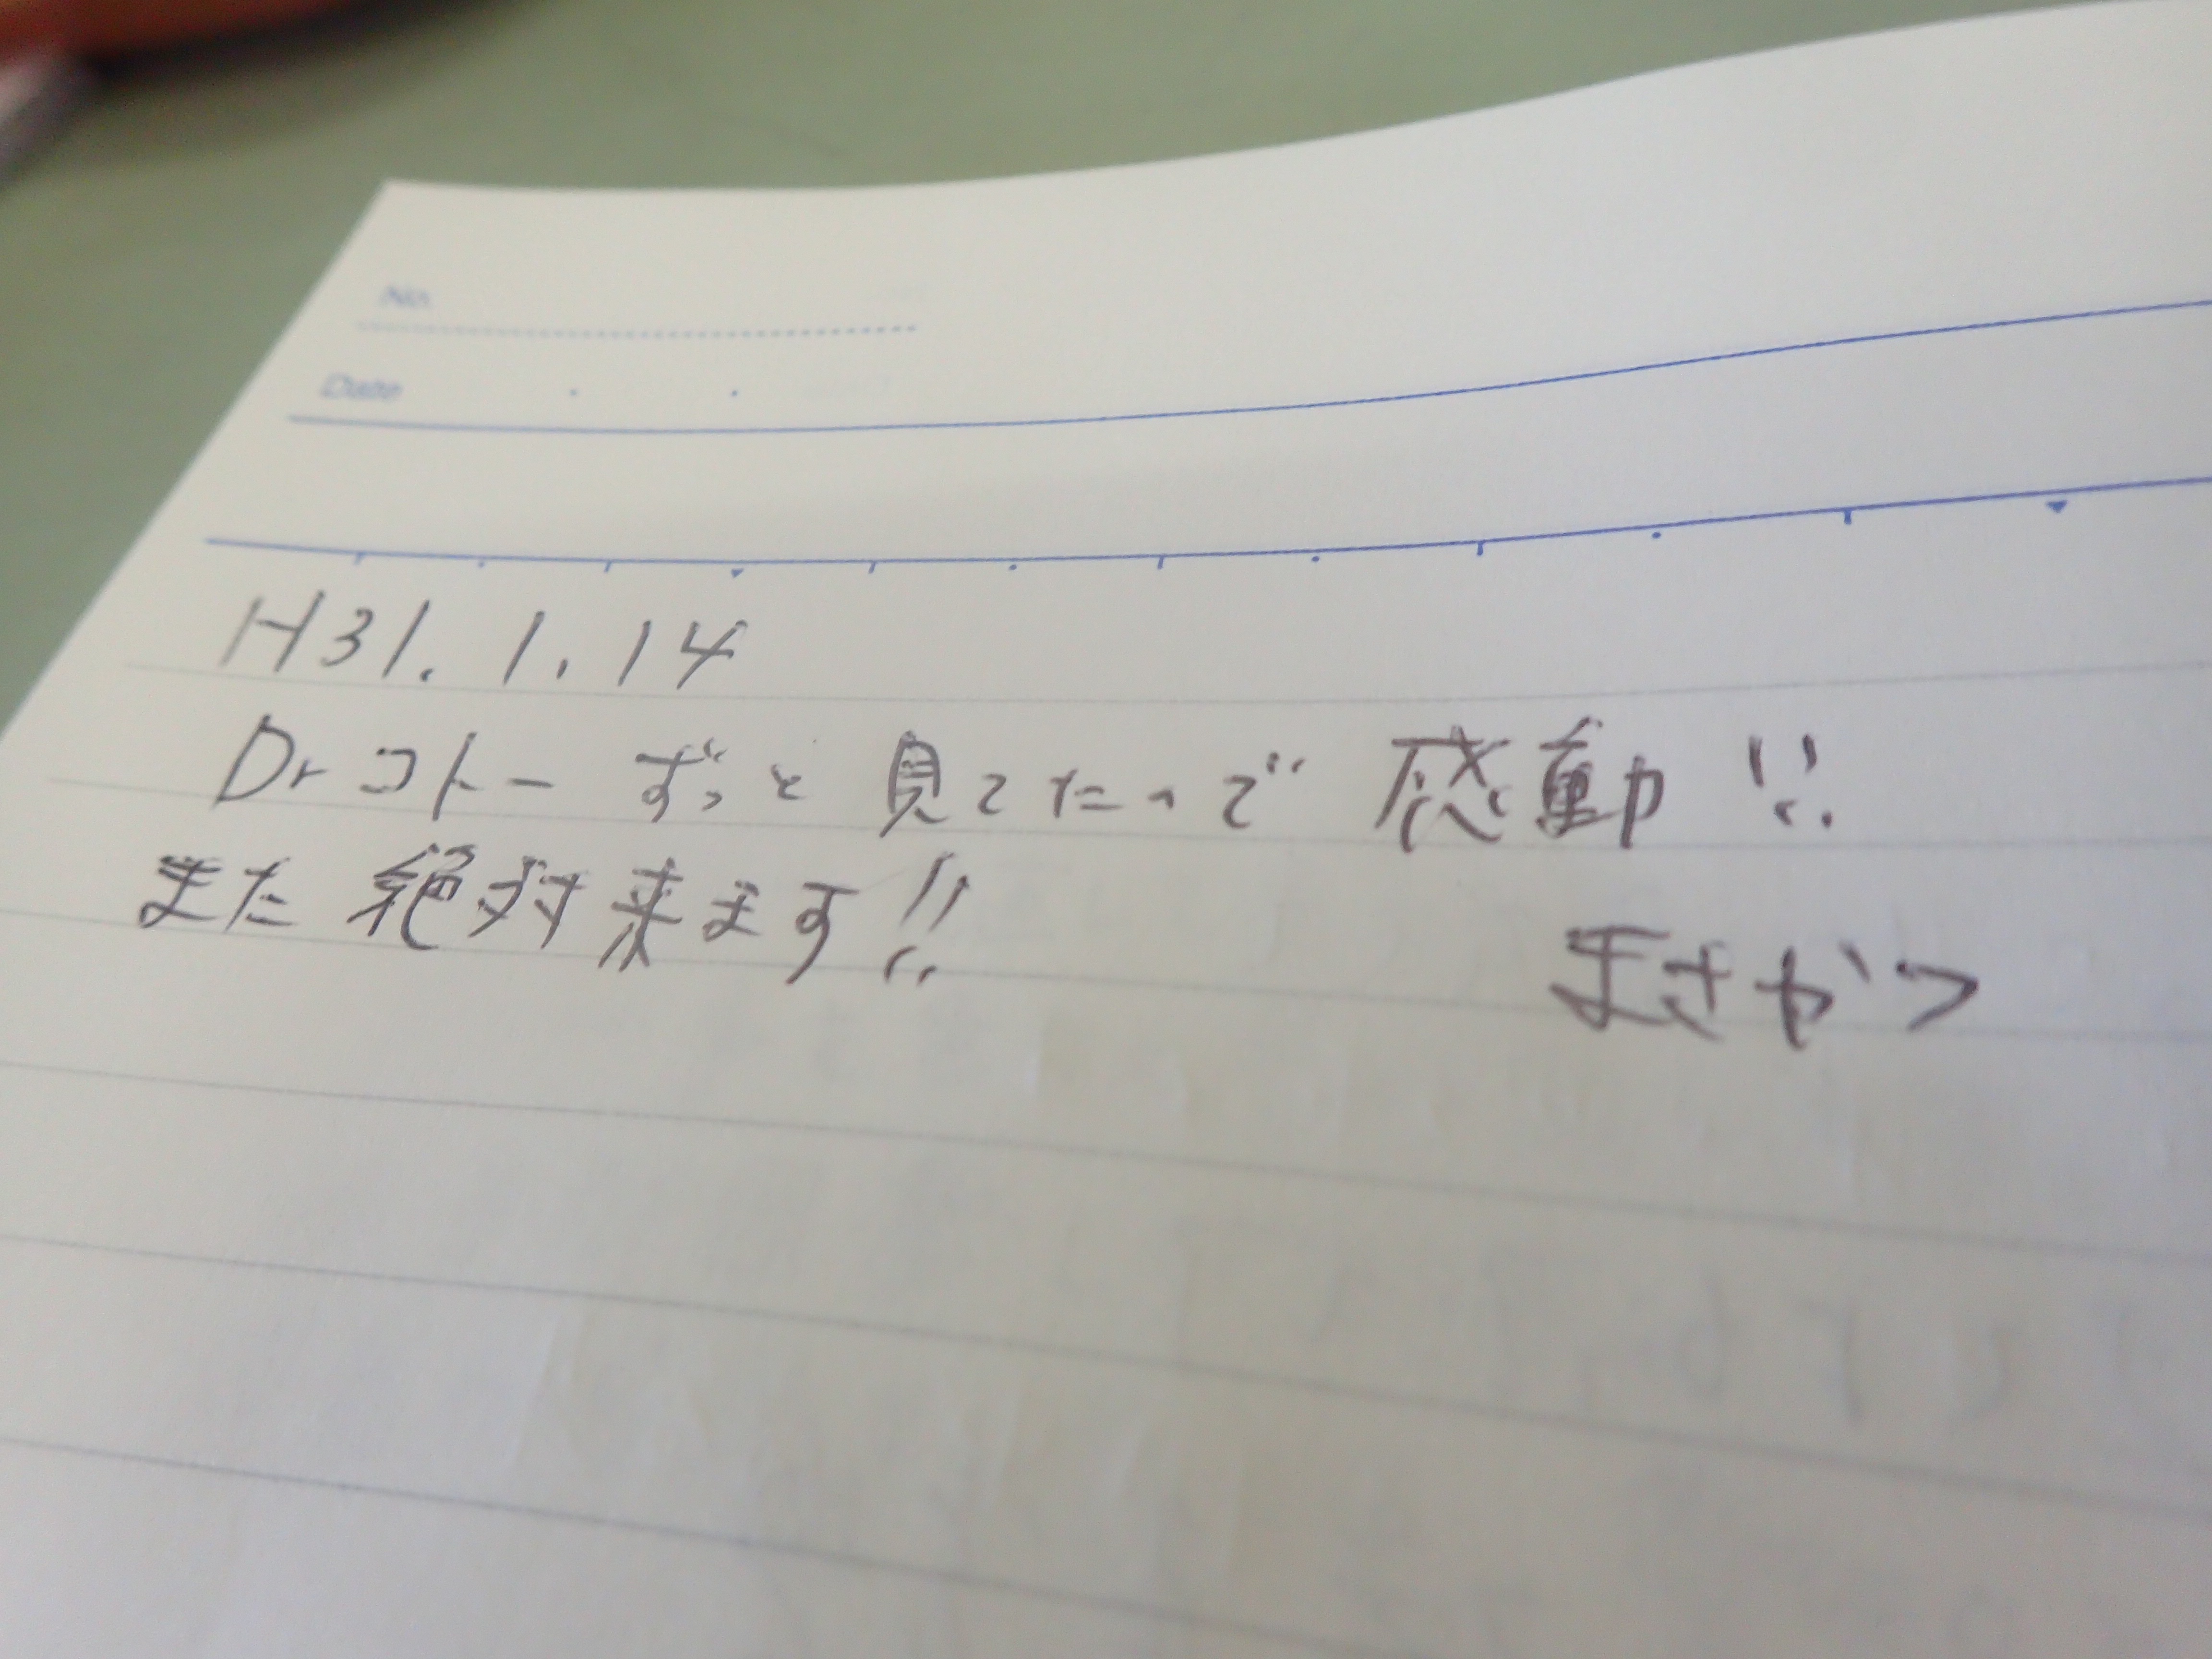 No.
Date
H31.1.14
Drコトー ずっと見てたので 感動!!
また絶対来ます!!
まさかつ